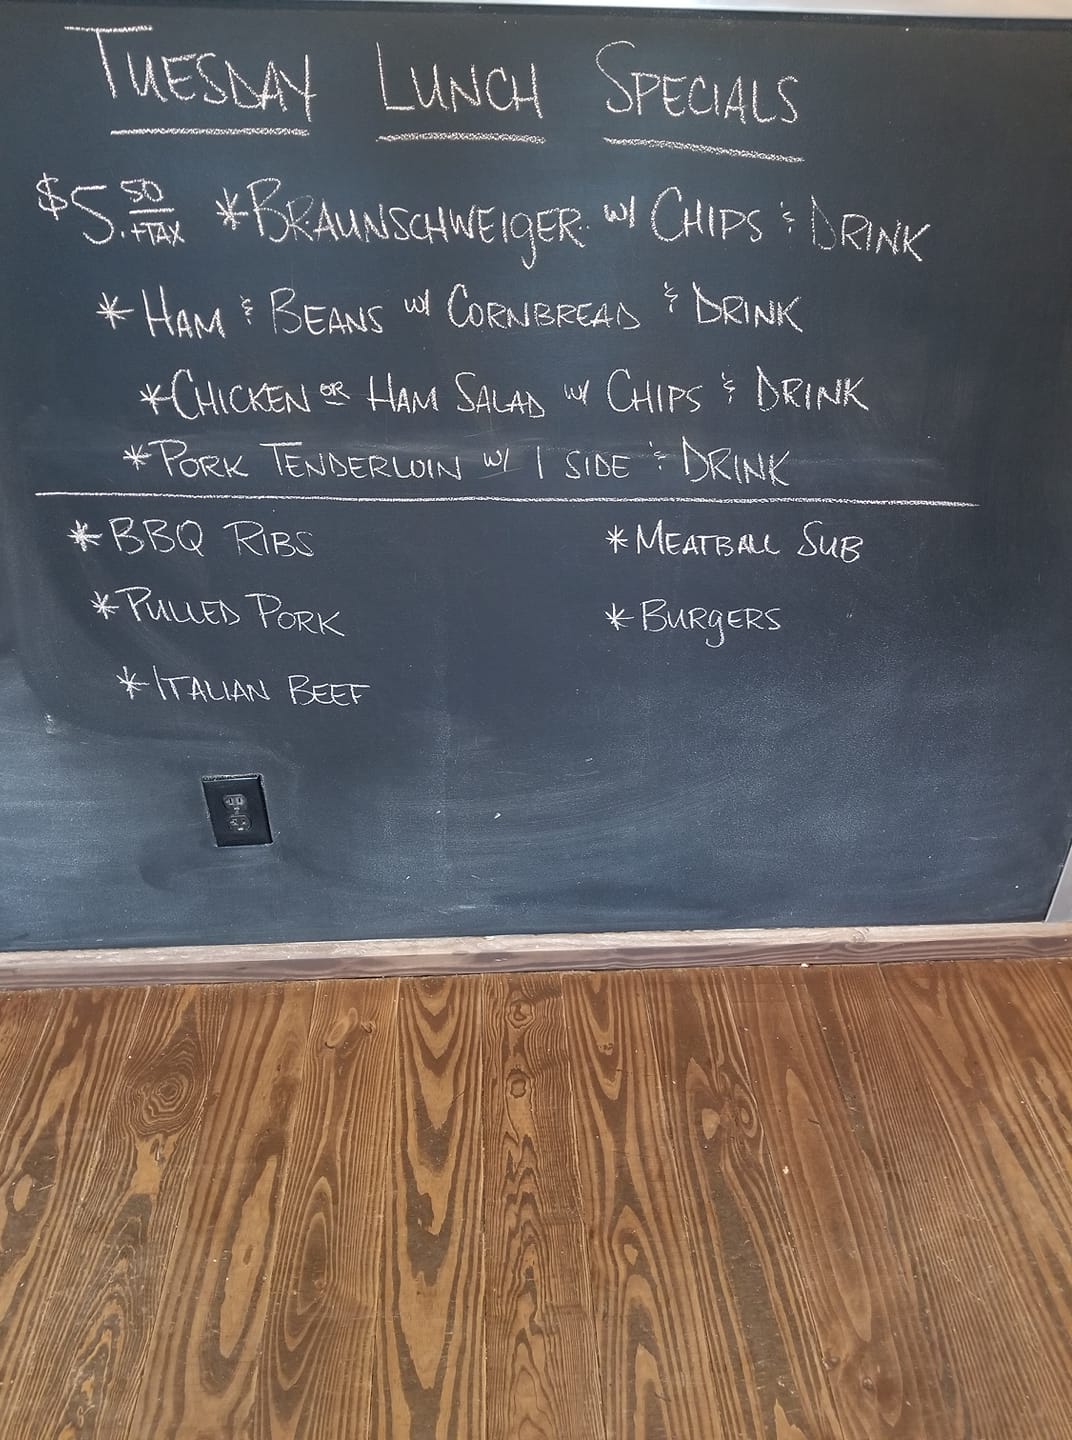 TUESDAY LUNCH SPECIALS
$5.50 +TAX *BRAUNSCHWEIGER w/ CHIPS & DRINK
*HAM & BEANS w/ CORNBREAD & DRINK
*CHICKEN OR HAM SALAD w/ CHIPS & DRINK
*PORK TENDERLOIN w/ 1 SIDE & DRINK
*BBQ RIBS
*PULLED PORK
*ITALIAN BEEF
*MEATBALL SUB
*BURGERS